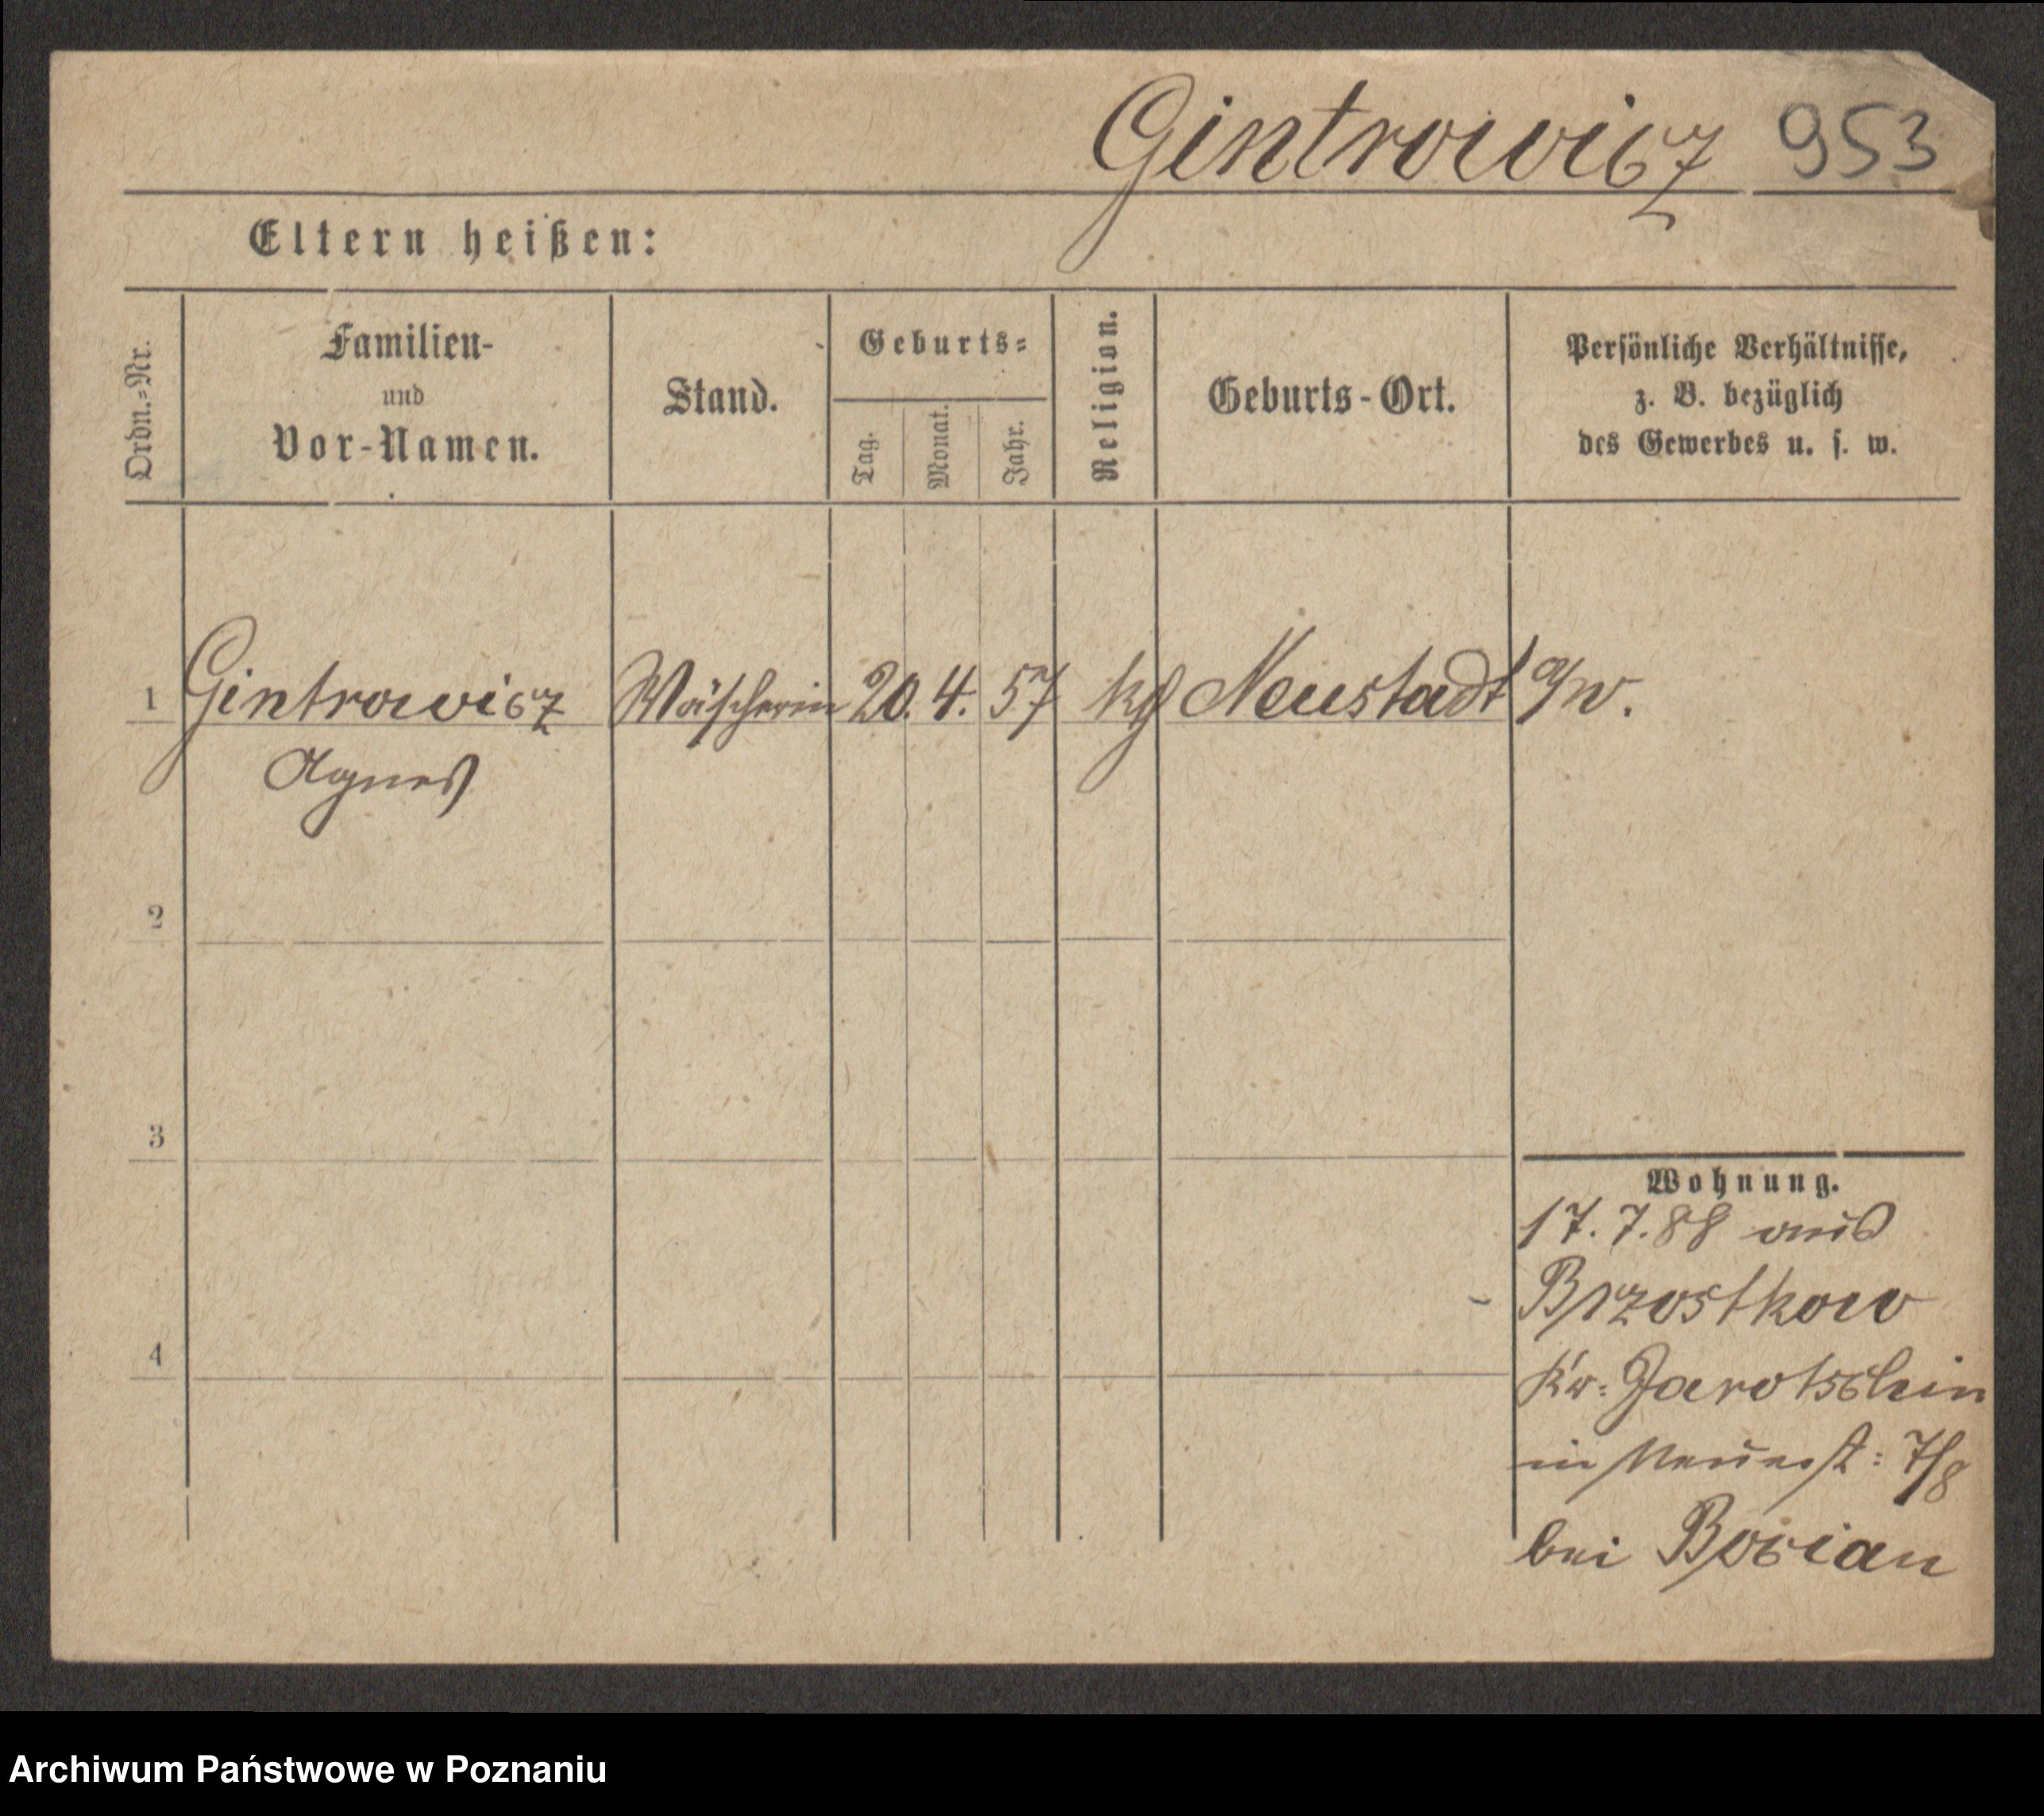 Gintrowicz 953
Eltern heißen:
Ordn.=Nr.
Familien-
und
Vor-Namen.
Stand.
Geburts=
Tag.
Monat.
Jahr.
Religion.
Geburts-Ort.
Persönliche Verhältnisse,
z. B. bezüglich
des Gewerbes u. s. w.
1 Gintrowicz Wäscherin 20. 4. 57 kgl Neustadt a/W.
Agnes
2
3
4
Wohnung.
17. 7. 88 aus
Brzostkow
Kr: Jarotschin
in 7/8
bei
Archiwum Państwowe w Poznaniu